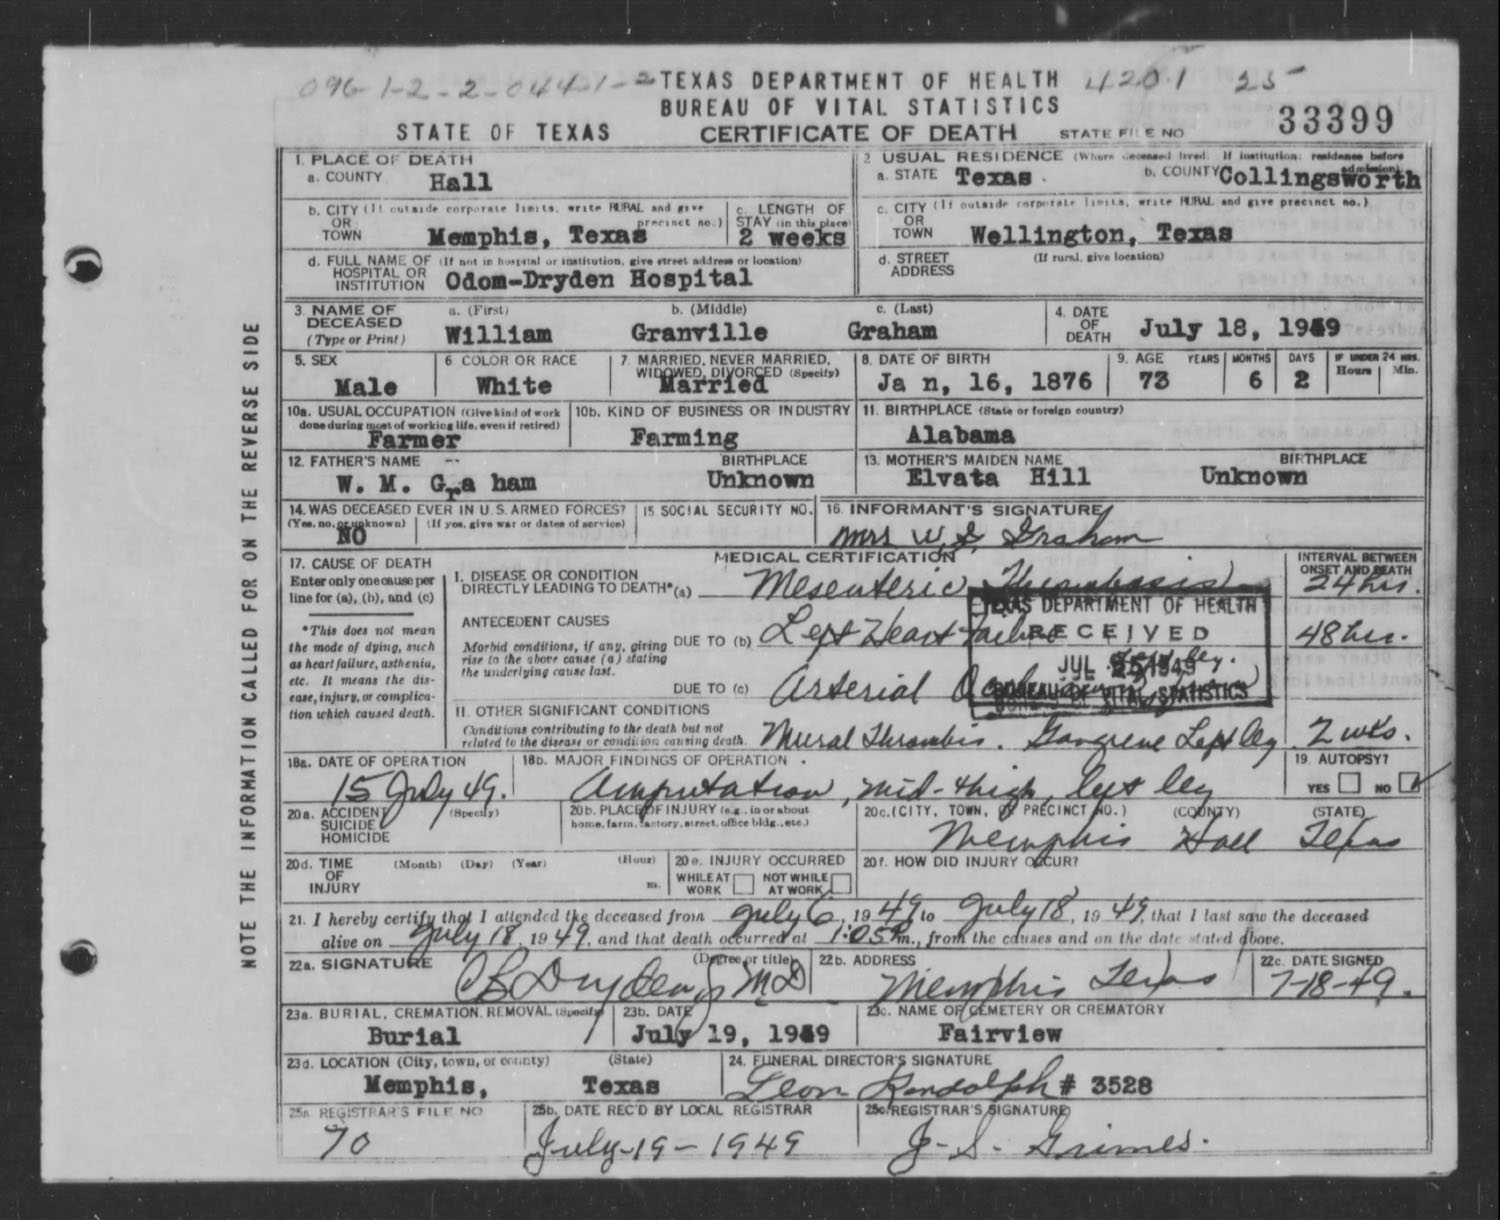 096-1-2-2-0441-2 TEXAS DEPARTMENT OF HEALTH 4201 25
BUREAU OF VITAL STATISTICS
STATE OF TEXAS CERTIFICATE OF DEATH STATE FILE NO 33399
1. PLACE OF DEATH
a. COUNTY Hall
2 USUAL RESIDENCE (Where deceased lived. If institution: residence before admission)
a. STATE Texas . b. COUNTY Collingsworth
b. CITY (If outside corporate limits, write RURAL and give precinct no.)
OR
TOWN Memphis, Texas
c. LENGTH OF
STAY (in this place)
2 weeks
c. CITY (If outside corporate limits, write RURAL and give precinct no.)
OR
TOWN Wellington, Texas
d. FULL NAME OF (If not in hospital or institution, give street address or location)
HOSPITAL OR
INSTITUTION Odom-Dryden Hospital
d. STREET (If rural, give location)
ADDRESS
3. NAME OF DECEASED (Type or Print)
a. (First) b. (Middle) c. (Last)
William Granville Graham
4. DATE
OF
DEATH July 18, 1949
5. SEX
Male
6 COLOR OR RACE
White
7. MARRIED, NEVER MARRIED,
WIDOWED, DIVORCED (Specify)
Married
8. DATE OF BIRTH
Ja n, 16, 1876
9. AGE YEARS MONTHS DAYS IF UNDER 24 HRS.
Hours Min.
73 6 2
10a. USUAL OCCUPATION (Give kind of work
done during most of working life, even if retired)
Farmer
10b. KIND OF BUSINESS OR INDUSTRY
Farming
11. BIRTHPLACE (State or foreign country)
Alabama
12. FATHER'S NAME -- BIRTHPLACE
W. M. Gra ham Unknown
13. MOTHER'S MAIDEN NAME BIRTHPLACE
Elvata Hill Unknown
14. WAS DECEASED EVER IN U.S. ARMED FORCES?
(Yes, no, or unknown) (If yes, give war or dates of service)
NO
15 SOCIAL SECURITY NO.
16. INFORMANT'S SIGNATURE
Mrs W. G. Graham
MEDICAL CERTIFICATION
17. CAUSE OF DEATH
Enter only one cause per
line for (a), (b), and (c)
*This does not mean
the mode of dying, such
as heart failure, asthenia,
etc. It means the dis-
ease, injury, or complica-
tion which caused death.
I. DISEASE OR CONDITION
DIRECTLY LEADING TO DEATH*(a) Mesenteric Thrombosis
INTERVAL BETWEEN
ONSET AND DEATH
24 hrs.
ANTECEDENT CAUSES
Morbid conditions, if any, giving
rise to the above cause (a) stating
the underlying cause last.
DUE TO (b) Left Heart Failure 48 hrs.
DUE TO (c) Arterial
TEXAS DEPARTMENT OF HEALTH
RECEIVED
JUL 25 1949
BUREAU OF VITAL STATISTICS
II. OTHER SIGNIFICANT CONDITIONS
Conditions contributing to the death but not
related to the disease or condition causing death.
Mural Thrombis. Gangrene Left leg 2 wks.
18a. DATE OF OPERATION
15 July 49.
18b. MAJOR FINDINGS OF OPERATION
Amputation, mid-thigh, left leg
19. AUTOPSY?
YES NO
20a. ACCIDENT (Specify)
SUICIDE
HOMICIDE
20b. PLACE OF INJURY (e.g., in or about
home, farm, factory, street, office bldg., etc.)
20c. (CITY, TOWN, OR PRECINCT NO.) (COUNTY) (STATE)
Memphis Hall Texas
20d. TIME (Month) (Day) (Year) (Hour)
OF
INJURY m.
20e. INJURY OCCURRED
WHILE AT WORK NOT WHILE AT WORK
20f. HOW DID INJURY OCCUR?
21. I hereby certify that I attended the deceased from July 6, 1949, to July 18, 1949, that I last saw the deceased
alive on July 18, 1949, and that death occurred at 1:05 P m., from the causes and on the date stated above.
22a. SIGNATURE (Degree or title)
Dryden Jr MD
22b. ADDRESS
Memphis Texas
22c. DATE SIGNED
7-18-49.
23a. BURIAL, CREMATION, REMOVAL (Specify)
Burial
23b. DATE
July 19, 1949
23c. NAME OF CEMETERY OR CREMATORY
Fairview
23d. LOCATION (City, town, or county) (State)
Memphis, Texas
24. FUNERAL DIRECTOR'S SIGNATURE
Leon Randolph # 3528
25a. REGISTRAR'S FILE NO
70
25b. DATE REC'D BY LOCAL REGISTRAR
July-19-1949
25c. REGISTRAR'S SIGNATURE
J. S. Grimes.
NOTE THE INFORMATION CALLED FOR ON THE REVERSE SIDE